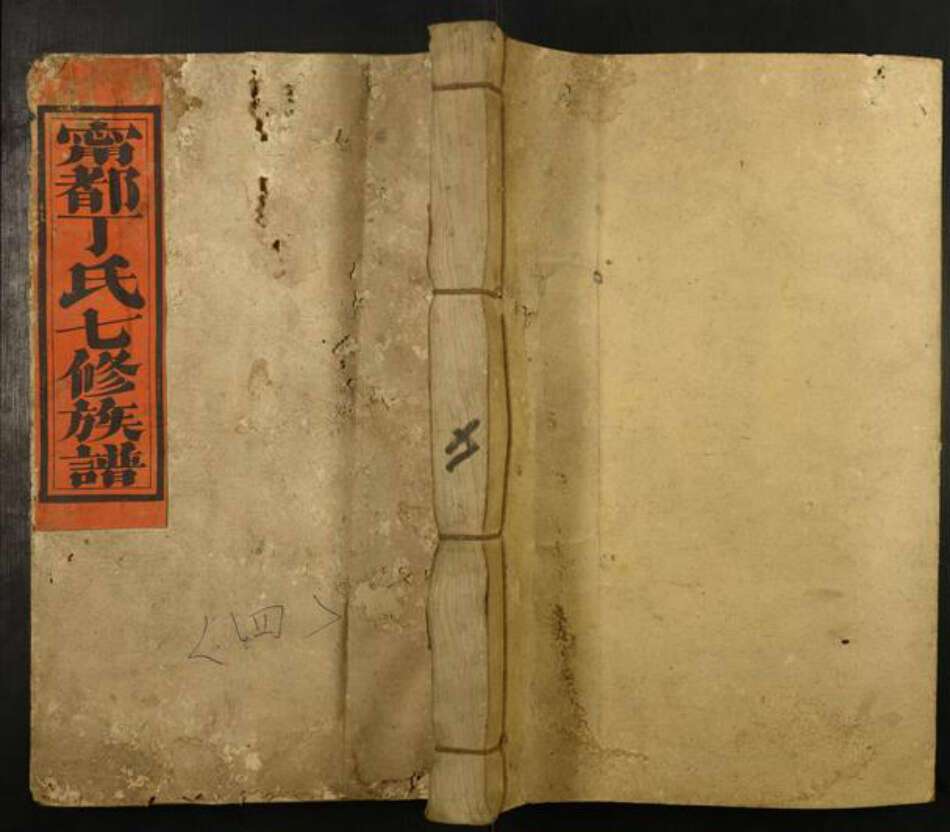 甯都丁氏七修族譜
〈四〉